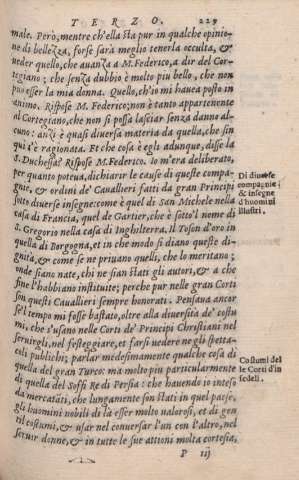 TERZO. 229
male. Però, mentre ch'ella sta pur in qualche opinio-
ne di bellezza, forse sarà meglio tenerla occulta, &
ueder quello, che auanza a M. Federico, a dir del Cor-
tegiano; che senza dubbio è molto piu bello, che non
può esser la mia donna. Quello, ch'io mi hauea posto in
animo. Rispose M. Federico; non è tanto appartenente
al Cortegiano, che non si possa lasciar senza danno al-
cuno: anzi è quasi diuersa materia da quella, che sin
qui s'è ragionata. Et che cosa è egli adunque, disse la
S. Duchessa? Rispose M. Federico. Io m'era deliberato,
per quanto poteua, dichiarir le cause di queste compa-
gnie, & ordini de' Cauallieri fatti da gran Principi
sotto diuerse insegne: come è quel di San Michele nella
casa di Francia, quel de Gartier, che è sotto'l nome di
S. Gregorio nella casa di Inghilterra. Il Toson d'oro in
quella di Borgogna, et in che modo si diano queste di-
gnità, & come se ne priuano quelli, che lo meritano;
onde siano nate, chi ne sian stati gli autori, & a che
fine l'habbiano instituite; perche pur nelle gran Corti
son questi Cauallieri sempre honorati. Pensaua ancor
se'l tempo mi fosse bastato, oltre alla diuersità de' costu
mi, che s'usano nelle Corti de' Principi Christiani nel
seruirgli, nel festeggiare, et farsi uedere ne gli spetta-
coli publichi; parlar medesimamente qualche cosa di
quella del gran Turco: ma molto piu particularmente
di quella del Soffi Re di Persia: che hauendo io inteso
da mercatāti, che lungamente son stati in quel paese,
gli huomini nobili di la esser molto ualorosi, et di gen
til costumi, & usar nel conuersar l'un con l'altro, nel
seruir donne, & in tutte le sue attioni molta cortesia,
P iij
Di diuerse
compagnie;
& insegne
d'huomini
illustri.
Costumi del
le Corti d'in
fedeli.